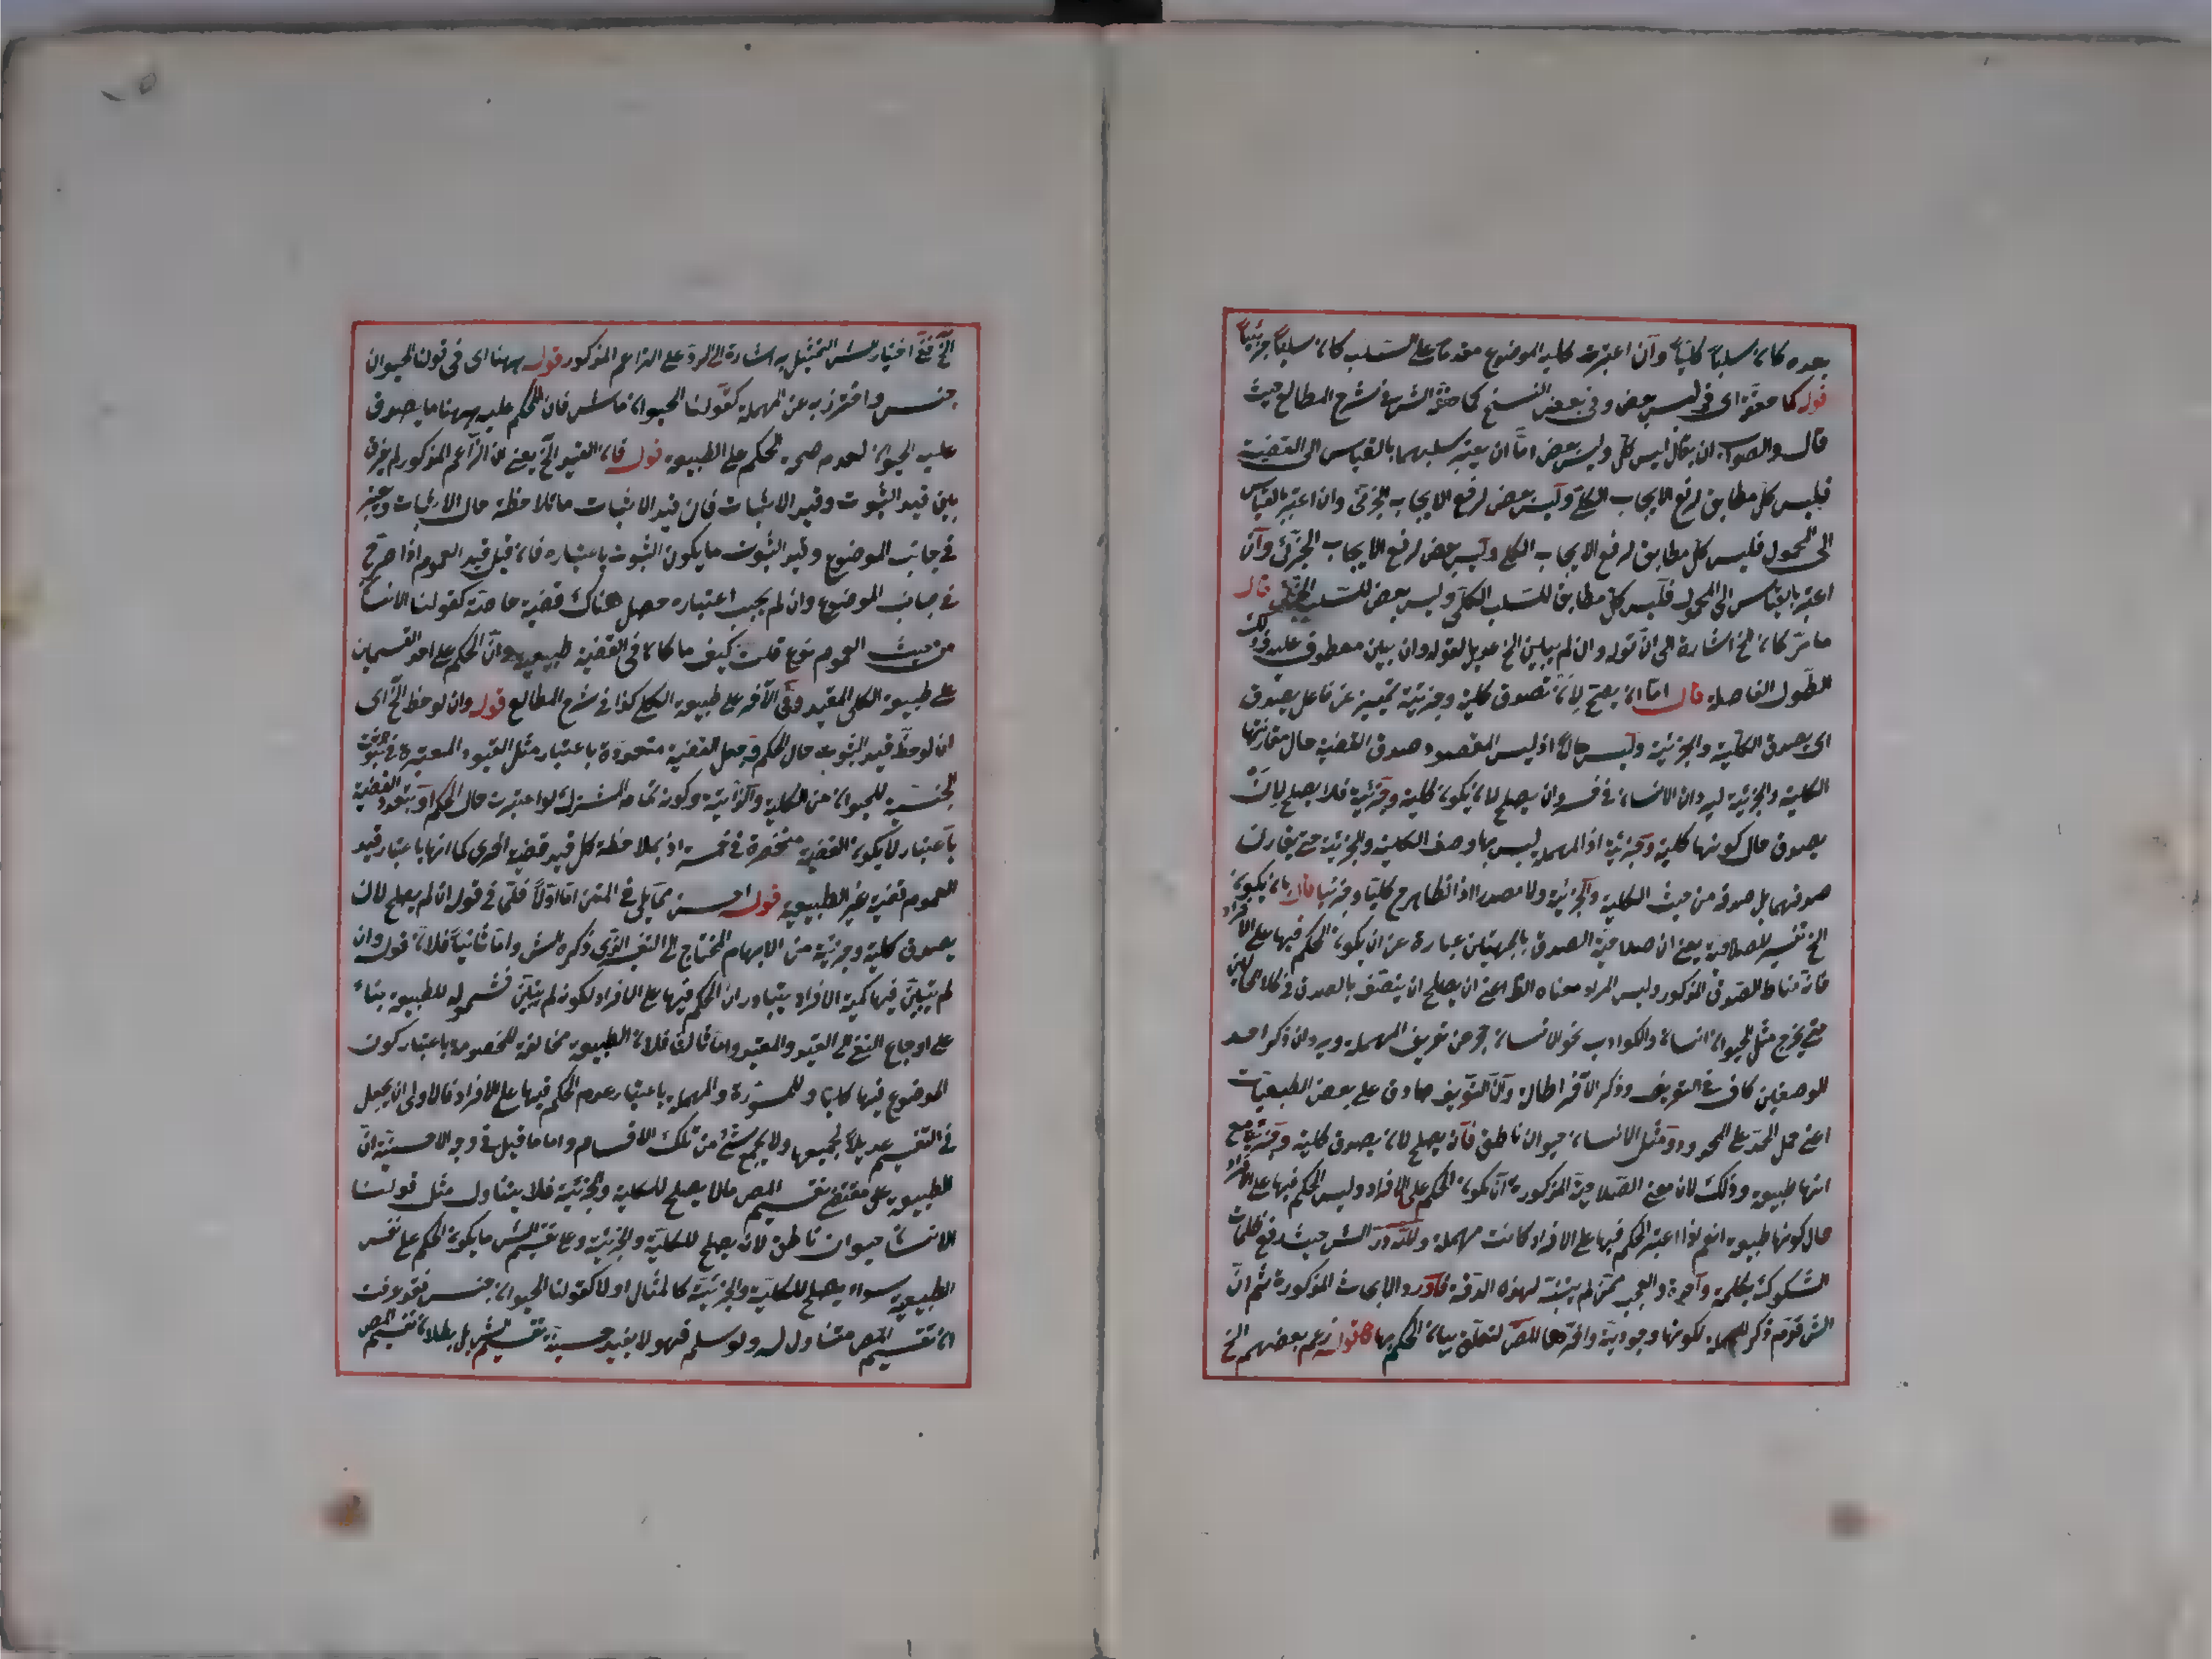 بعده كان سلباً كلياً وان اعتبرت كلية الموضوع مقدما على السلب كان سلباً جزئياً
قوله كما حققه اى فى ليس بعض وفى بعض النسخ كما حققه الش فى شرح المطالع حيث
قال والصواب ان يقال ليس كل وليس بعض اما ان يعتبر سلبهما بالقياس الى القضية
فليس كل مطابق لرفع الايجاب الكلى وليس بعض لرفع الايجاب الجزئى وان اعتبر بالقياس
الى المحمول فليس كل مطابق لرفع الايجاب الكلى وليس بعض لرفع الايجاب الجزئى وان
اعتبر بالقياس الى المحمول فليس كل مطابق للسلب الكلى وليس بعض للسلب الجزئى قال
ما مر كان الخ اشارة الى ان قوله وان لم يبين الخ عديل لقوله وان بين معطوف عليه
الطول الفاصلة قال اما ان يصح لان تصدق كلية وجزئية تمييز عن فاعل يصدق
اى يصدق الكلية والجزئية وليس حالا اذ ليس المقصود صدق القضية حال مقارنتها
الكلية والجزئية ليرد ان الانسان فى خسر وان يصلح لان يكون كلية وجزئية فلا يصلح لان
يصدق حال كونها كلية وجزئية اذ المهملة ليس بها وصف الكلية والجزئية حتى يقارن
صدقهما بل صدقه من حيث الكلية والجزئية ولا مصدرا اذ الظاهر ح كليا وجزئيا قال بان يكون
الخ تفسير للصلاحية يعنى ان صلاحية الصدق بالجهتين عبارة عن ان يكون الحكم فيها على الافراد
فانه مناط الصدق المذكور وليس المراد معناه الظ اعنى ان يصلح ان يتصف بالصدق فى كلا الحالين
حتى يخرج مثل الحيوان انسان والكواذب نحو لا انسان حجر من تعريف المهملة ويرد ان ذكر احد
الوصفين كاف فى التعريف وذكر الآخر اطالة ولان التعريف صادق على بعض الطبعيات
اعنى حمل الحد على المحدود مثل الانسان حيوان ناطق فانه يصلح لان يصدق كلية وجزئية مع
انها طبيعية وذلك لان معنى الصلاحية المذكورة ان يكون الحكم على الافراد وليس الحكم فيها على الافراد
حال كونها طبيعية نعم لو اعتبر الحكم فيها على الافراد كانت مهملة ولله در الش حيث دفع ظلمات
الشكوك بكلمة واحدة والعجب ممن لم يتنبه لهذه الدقة فاورد الابحاث المذكورة ثم ان
الش قدم ذكر المهملة لكونها وجودية واخرها المص لتعلق بيان الحكم بها قوله زعم بعضهم الخ
الخ ففى اختيار الش التمثيل به اشارة الى الرد على الزاعم المذكور قوله ههنا اى فى قولنا الحيوان
جنس واحترز به عن المهملة كقولنا الحيوان ماش فان الحكم عليه ههنا ما يصدق
عليه الحيوان لعدم صحة الحكم على الطبيعة قوله فان القيد الخ يعنى ان الزاعم المذكور لم يفرق
بين قيد الثبوت وقيد الاثبات فان قيد الاثبات ما تلاحظه حال الاثبات وتعتبر
فى جانب الموضوع وقيد الثبوت ما يكون الثبوت باعتباره فان قيل قيد العموم اذا صرح
فى جانب الموضوع وان لم يجب اعتباره حصل هناك قضية خاصة كقولنا الانسان
من حيث العموم نوع قلت كيف ما كان فى القضية طبيعية وان الحكم على احد القسمين
على طبيعة الكلى المقيد وفى الآخر على طبيعة الكلى كذا فى شرح المطالع قوله وان لوحظ الخ اى
ان لوحظ قيد الثبوت حال الحكم وجعل القضية متعددة باعتبار مثل القيود المعتبرة فى ثبوت
الجنسية للحيوان من الكلية والذاتية وكونه تمام المشترك لو اعتبرت حال الحكم وبتعدد القضية
باعتبار لا يكون القضية منحصرة فى خمسة اذ بملاحظة كل قيد قضية اخرى كما انها باعتبار قيد
العموم قضية غير الطبيعية قوله احسن مما قيل فى المتن اما اولاً فلما فى قوله ان لم يصلح لان
يصدق كلية وجزئية من الابهام المحتاج الى التفسير الذى ذكره الش واما ثانياً فلان قوله وان
لم يتبين فيها كمية الافراد يتبادر ان الحكم فيها على الافراد لكونه لم يتبين فشموله للطبيعية بناءً
على ارجاع النفى الى القيد والمقيد واما ثالثا فلان الطبيعية مخالفة للمخصوصة باعتبار كون
الموضوع فيها كليا وللمسورة والمهملة باعتبار عدم الحكم فيها على الافراد فالاولى ان يجعل
فى التقسيم عديلاً لجميعها ولا يجمع شئ من تلك الاقسام واما ما قيل فى وجه الاحسنية ان
الطبيعية على مقتضى تقسيم المص ما لا يصلح للكلية والجزئية فلا يتناول مثل قولنا
الانسان حيوان ناطق لانه يصلح للكلية والجزئية وعلى تقسيم الش ما يكون الحكم على نفس
الطبيعة سواء يصلح للكلية والجزئية كالمثال اولا كقولنا الحيوان جنس فقد عرفت
ان تقسيم المص متناول له ولو سلم فهو لا يفيد حسنية تقسيم الش بل بطلان تقسيم المص